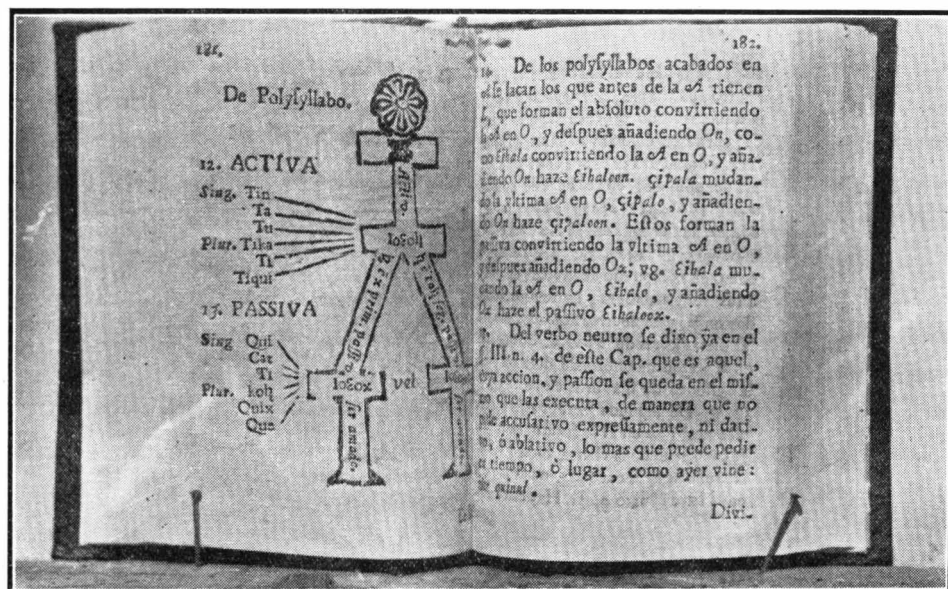 De Polysyllabo.
12. ACTIVA
Sing. Tin
Ta
Tu
Plur. Tika
Ti
Tiqui
loɛoh
13. PASSIVA
Sing Qui
Cat
Ti
Plur. koh
Quix
Que
loɛox
vel
ser amado.
182.
De los polyſyllabos acabados en
ſe ſacan los que antes de la A tienen
que forman el abſoluto convirtiendo
la A en O, y deſpues añadiendo On, co-
mo Eihala convirtiendo la A en O, y aña-
diendo On haze Eihaloon. çipala mudan-
do la vltima A en O, çipalo, y añadien-
do On haze çipaloon. Eſtos forman la
paſſiva convirtiendo la vltima A en O,
y deſpues añadiendo Ox; vg. Eihala mu-
dando la A en O, Eihalo, y añadiendo
Ox haze el paſſivo Eihaloox.
Del verbo neutro ſe dixo yà en el
§. III n. 4. de èſte Cap. que es aquel,
cuya accion, y paſſion ſe queda en el miſ-
mo que las executa, de manera que no
pide accuſativo expreſſamente, ni dati-
vo, ò ablativo, lo mas que puede pedir
es tiempo, ò lugar, como ayer vine:
xquinal.
Divi-